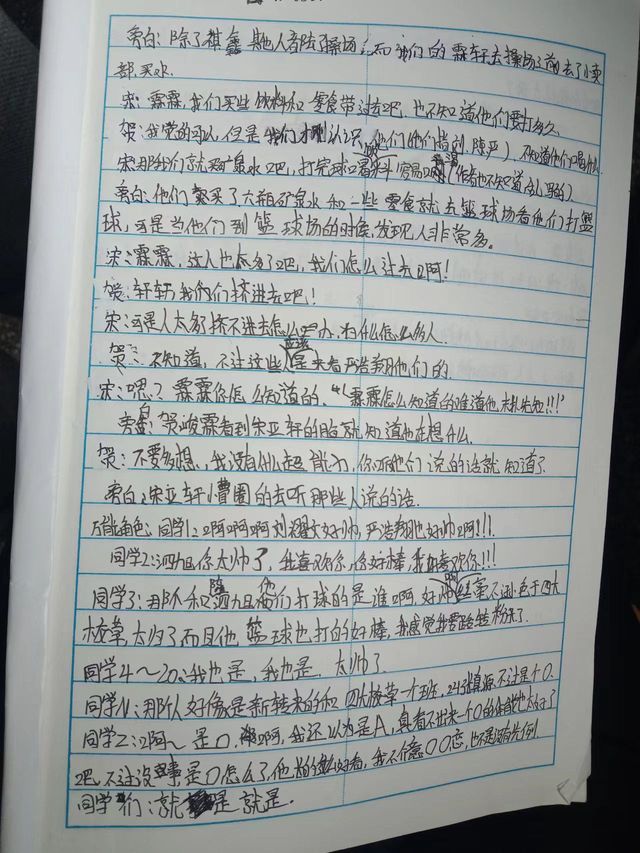 旁白:除了棋鑫其他人音陆了操场,而我们的霖轩去操场之前去了小卖
部买水.
宋:霖霖,我们买些饮料和零食带过去吧,也不知道他们要打多久.
贺:我觉的可以,但是我们才刚认识他们,不知道他们喝什么
宋:那我们就买矿泉水吧,打完球喝(作者也不知道,乱写的)
旁白:他们买了六瓶矿泉水和一些零食就去篮球场看他们打篮
球,可是当他们到篮球场的时候,发现人非常多.
宋:霖霖,这人也太多了吧,我们怎么过去啊!
贺:轩轩,我们挤进去吧!
宋:可是人太多挤不进去怎么办.为什么怎么多人.
贺:不知道,不过这些人应该是来看严浩翔他们的.
宋:嗯?霖霖你怎么知道的."霖霖怎么知道的难道他未来先知!!!"
旁白:贺峻霖看到宋亚轩的脸就知道他在想什么.
贺:不要多想,我没有什么超能力,你听他们说的话就知道了
旁白:宋亚轩小蕾圈的去听那些人说的话.
万能角色:同学1:啊啊啊啊刘耀文好帅,严浩翔也好帅啊!!!
同学2:泗旭你太帅了,我喜欢你,你好棒,我好喜欢你!!!
同学3:那个和陪泗旭他们打球的是谁啊,好帅啊结革不逊色于四大
校草,太帅了而且他篮球也打的好棒,我感觉我要路转粉了.
同学4~20:我也是,我也是,太帅了.
同学N:那个好像是新转来的和四大校草一个班,叫张真源.不过是个O.
同学Z:啊~是O,啊,我还以为是A,真看不出来一个O的体能也太好了
吧,不过没事是O怎么了,他长的这么好看,我不介意OO恋,也不是没有先例
同学们:就是就是.